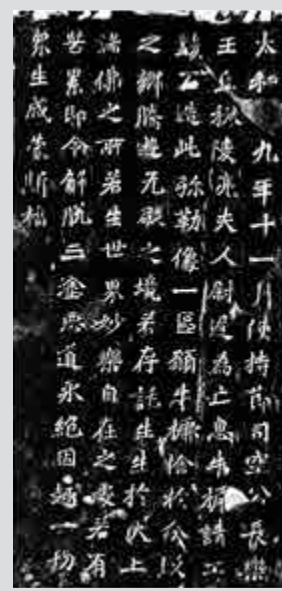 太和九年十一月使持節司空公長樂
王丘穆陵亮夫人尉遲為亡息牛橛請工
鏤石造此弥勒像一區願牛橛捨於分段
之鄉騰遊无礙之境若存託生生於天上
諸佛之所若生世界妙樂自在之處若有
苦累即令解脱三塗惡道永絕因趣一切
眾生咸蒙斯福